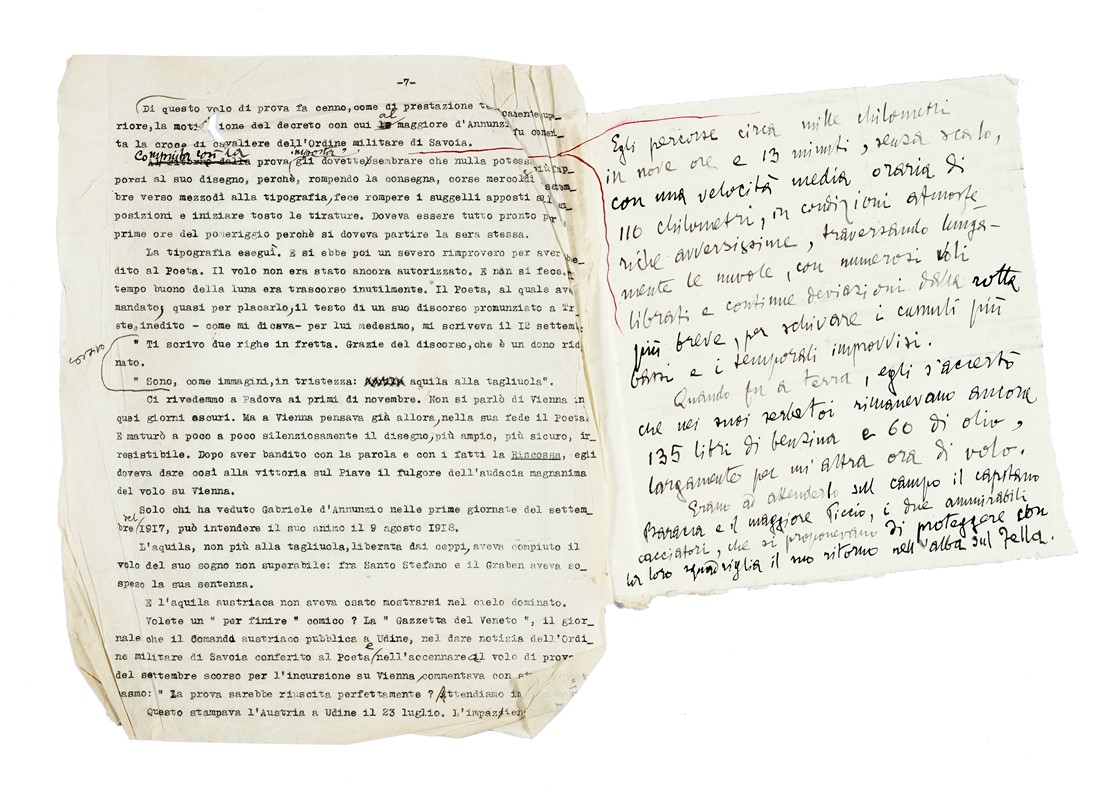 -7-
Di questo volo di prova fa cenno,come di prestazione
riore,la motivazione del decreto con cui al maggiore d'Annunzi fu conen_
ta la croce di cavaliere dell'Ordine militare di Savoia.
Compiuta così la prova gli dovette sembrare che nulla potess più imp_
porei al suo disegno, perchè, rompendo la consegna, corse mercol
bre verso mezzodì alla tipografia,fece rompere i suggelli apposti
posizioni e iniziare tosto le tirature. Doveva essere tutto pronto
prime ore del pomeriggio perchè si doveva partire la sera stessa.
La tipografia eseguì. E si ebbe poi un severo rimprovero per aver
dito al Poeta. Il volo non era stato ancora autorizzato. E non si fece.
tempo buono della luna era trascorso inutilmente. Il Poeta, al quale av
mandato, quasi per placarlo,il testo di un suo discorso pronunziato a Tr
ste,inedito - come mi diceva- per lui medesimo, mi scriveva il 12 settem
scrivo
" Ti scrivo due righe in fretta. Grazie del discorso,che è un dono rid
nato.
" Sono, come immagini,in tristezza: aquila alla tagliuola".
Ci rivedemmo a Padova ai primi di novembre. Non si parlò di Vienna in
quei giorni oscuri. Ma a Vienna pensava già allora,nella sua fede il Poeta.
E maturò a poco a poco silenziosamente il disegno,più ampio, più sicuro, ir_
resistibile. Dopo aver bandito con la parola e con i fatti la Riscossa, egli
doveva dare così alla vittoria sul Piave il fulgore dell'audacia magnanima
del volo su Vienna.
Solo chi ha veduto Gabriele d'Annunzio nelle prime giornate del settem_
bre del 1917, può intendere il suo animo il 9 agosto 1918.
L'aquila, non più alla tagliuola,liberata dai ceppi,aveva compiuto il
volo del suo sogno non superabile: fra Santo Stefano e il Graben aveva so_
speso la sua sentenza.
E l'aquila austriaca non aveva osato mostrarsi nel cielo dominato.
Volete un " per finire " comico ? La " Gazzetta del Veneto ", il gior_
nale che il Comando austriaco pubblica a Udine, nel dare notizia dell'Ordi_
ne militare di Savoia conferito al Poeta e nell'accennare al volo di prova
del settembre scorso per l'incursione su Vienna,commentava con
asmo: " La prova sarebbe riuscita perfettamente ? Attendiamo
Questo stampava l'Austria a Udine il 23 luglio. L'impazien
Egli percorse circa mille chilometri
in nove ore e 13 minuti, senza scalo,
con una velocità media oraria di
110 chilometri, in condizioni atmosfe_
riche avversissime, traversando lunga-
mente le nuvole, con numerosi voli
librati e continue deviazioni dalla rotta
più breve, per schivare i cumuli più
bassi e i temporali improvvisi.
Quando fu a terra, egli s'accertò
che nei suoi serbatoi rimanevano ancora
135 litri di benzina e 60 di olio,
largamente per un'altra ora di volo.
Erano ad attenderlo sul campo il capitano
Baracca e il maggiore Piccio, i due ammirabili
cacciatori, che si proponevano di proteggere con
la loro squadriglia il suo ritorno nell'alba sul Zella.